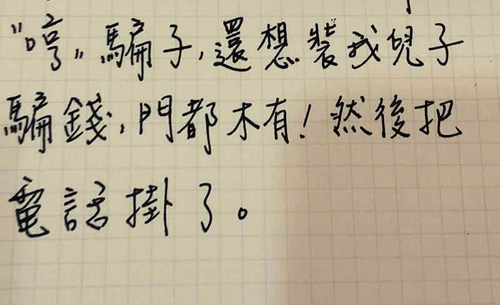 "哼"騙子,還想裝我兒子
騙錢,門都木有!然後把
電話掛了。